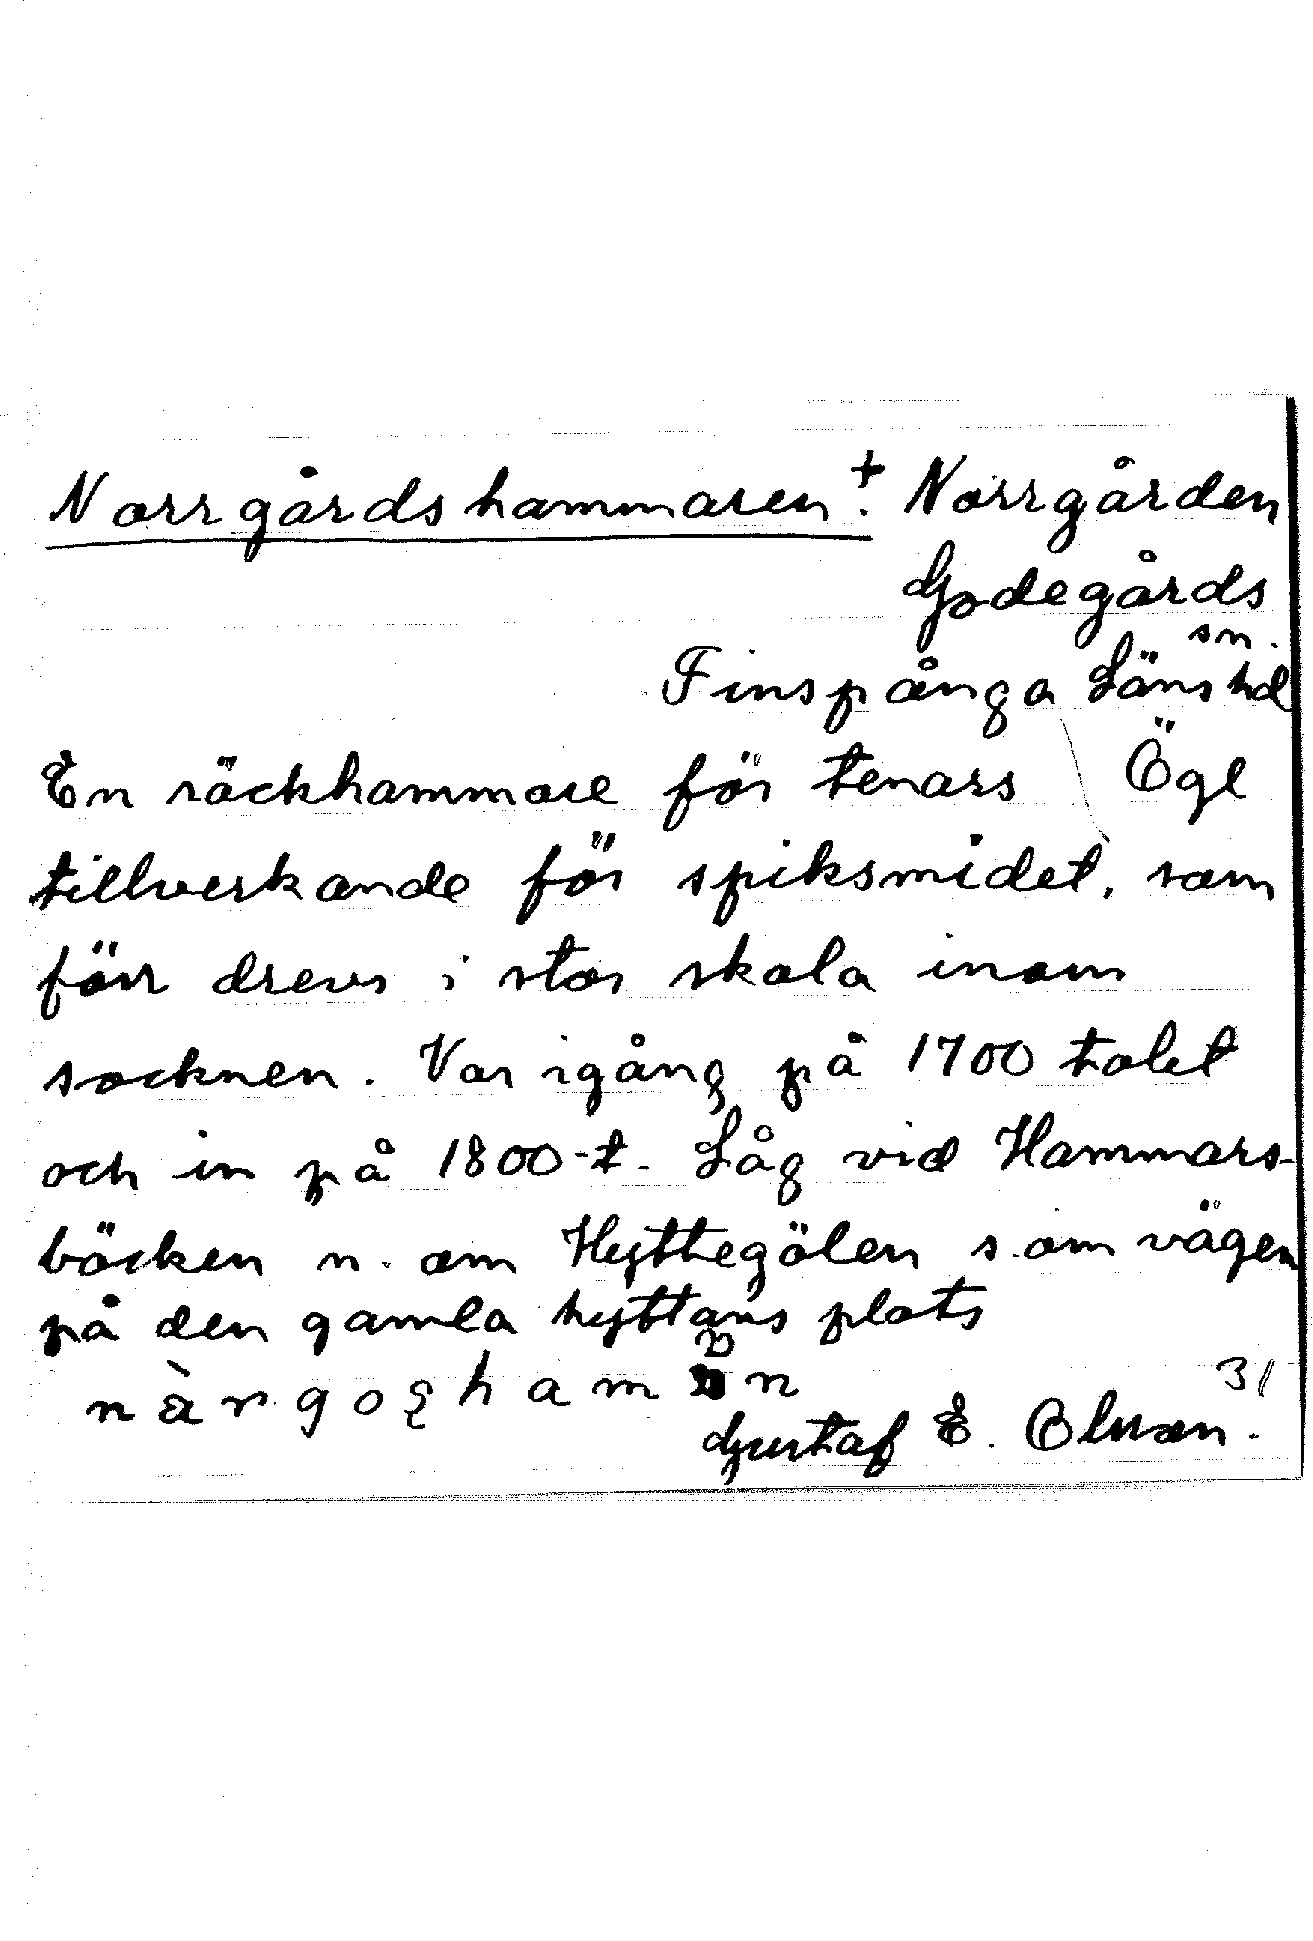 Norrgårdshammaren.+ Norrgården
Godegårds
sn.
Finspånga Länshd
En räckhammare för tenars Ögl
tillverkande för spiksmidet, som
förr drevs i stor skala inom
socknen. Var igång på 1700 talet
och in på 1800-t. Låg vid Hammars-
bäcken n. om Hyttegölen s. om vägen
på den gamla hyttans plats
31
Gustaf E. Olsson.